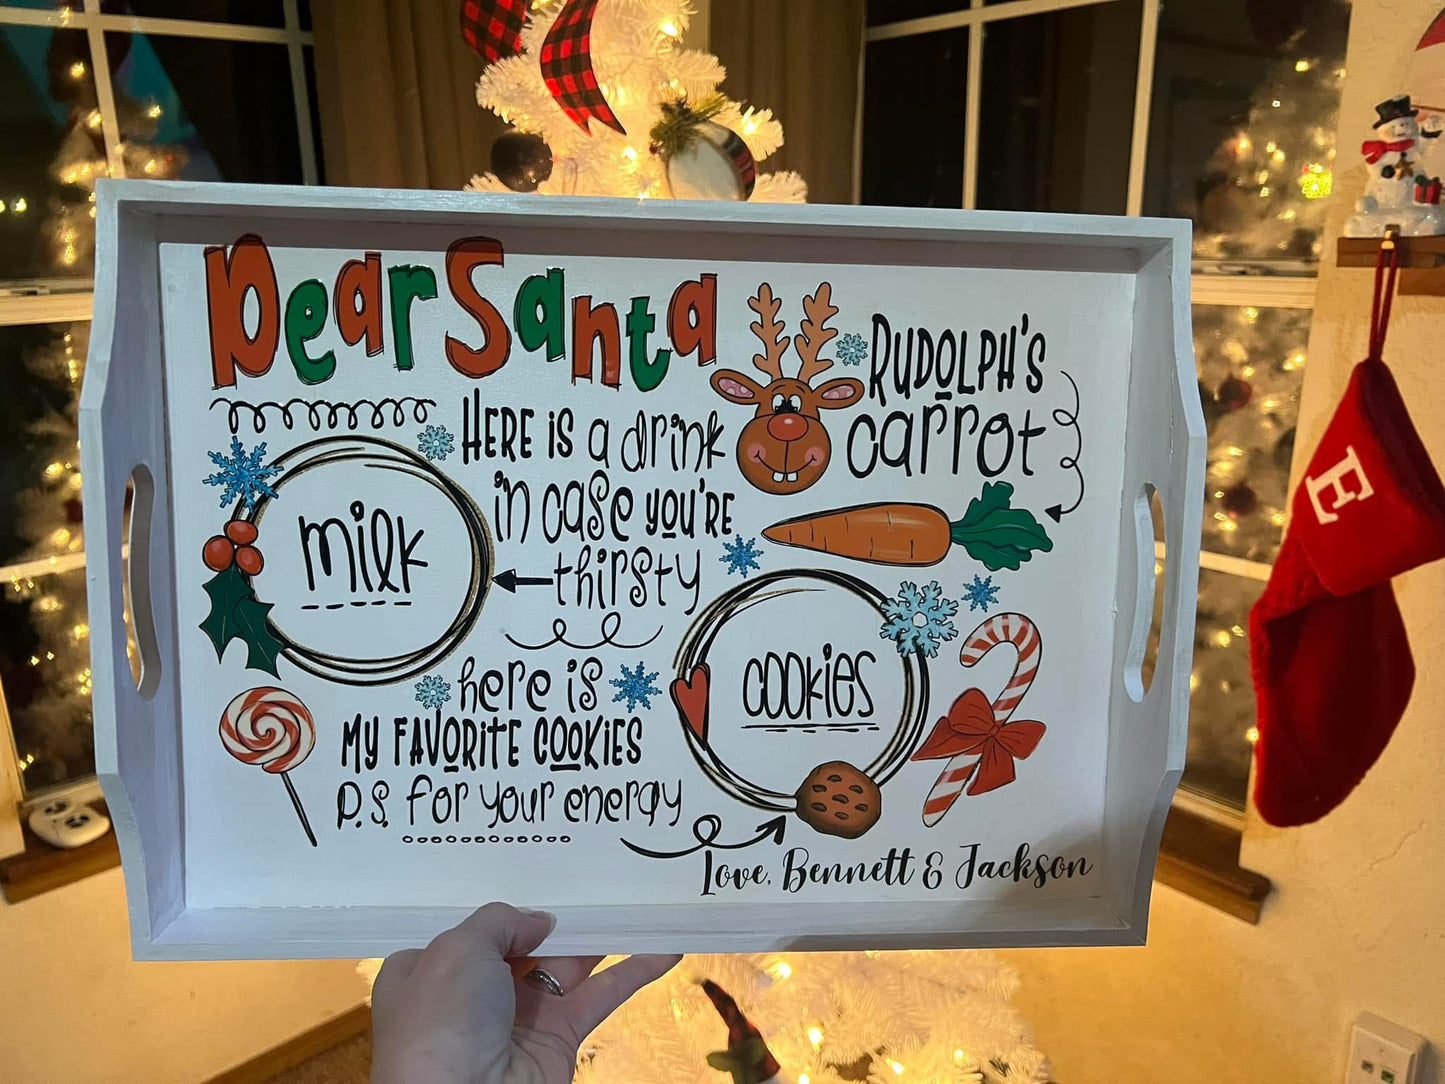 Dear Santa
Here is a drink
in case you're
thirsty
milk
Rudolph's
carrot
here is
my favorite cookies
P.S. for your energy
cookies
Love, Bennett & Jackson
E